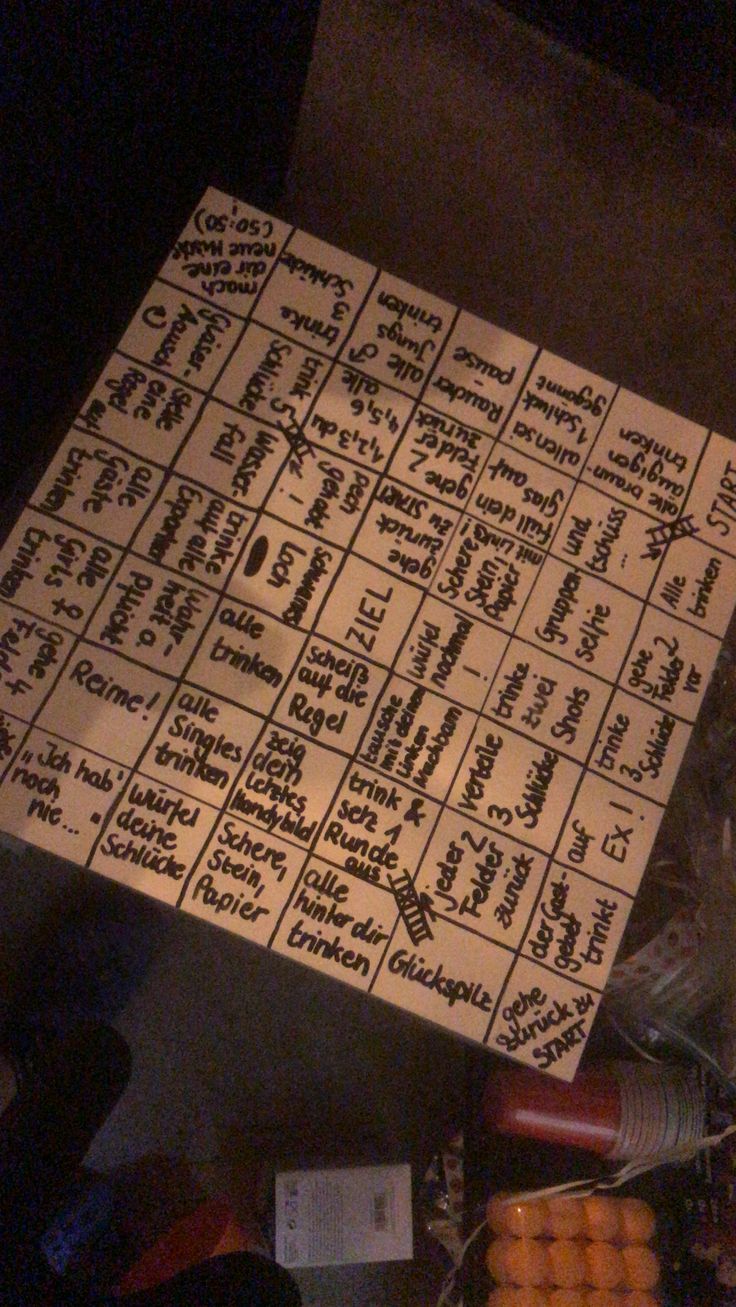 START
Alle
trinken
gehe
2
Felder
vor
trinke
3
Schlücke
auf
EX!
der Gast-
geber
trinkt
gehe
zurück zu
START
Glückspilz
alle
hinter dir
trinken
Schere,
Stein,
Papier
würfel
deine
Schlücke
"Ich hab'
noch
nie..."
gehe
4
alle
Girls ♀
trinken
alle
Gäste
trinken
Stelle
eine
Regel
auf
Gläser-
Pause
mach
dir eine
neue
(50:50)
trinke
3
Schlücke
alle ♂
Jungs
trinken
Raucher
-
pause
allen sei
1 Schluck
gegönnt
alle braun
äugigen
trinken
und
tschüss
...
Gruppen
selfie
trinke
zwei
Shots
verteile
3
Schlücke
jeder 2
Felder
zurück
trink &
setz 1
Runde
aus
zeig
dein
letztes
Handybild
alle
Singles
trinken
Reime!
Wahr-
heit o.
Pflicht
trinke
auf alle
Exparnter
Wasser-
fall
trink 5
Schlücke
1,2,3 du
4,5,6
alle
gehe 2
Felder
zurück
Füll dein
Glas auf
Schere
Stein
Papier
mit Links!
würfel
nochmal
!
tausche
mit deinem
Linken
Nachbarn
Scheiß
auf die
Regel
alle
trinken
schwarzes
Loch
pech
gehabt
!
gehe
zurück
zu START
ZIEL